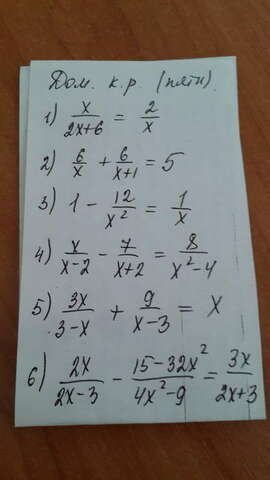 Дом. к.р. (пяти).
1) x/(2x+6) = 2/x
2) 6/x + 6/(x+1) = 5
3) 1 - 12/x² = 1/x
4) x/(x-2) - 7/(x+2) = 8/(x²-4)
5) 3x/(3-x) + 9/(x-3) = x
6) 2x/(2x-3) - (15-32x²)/(4x²-9) = 3x/(2x+3)